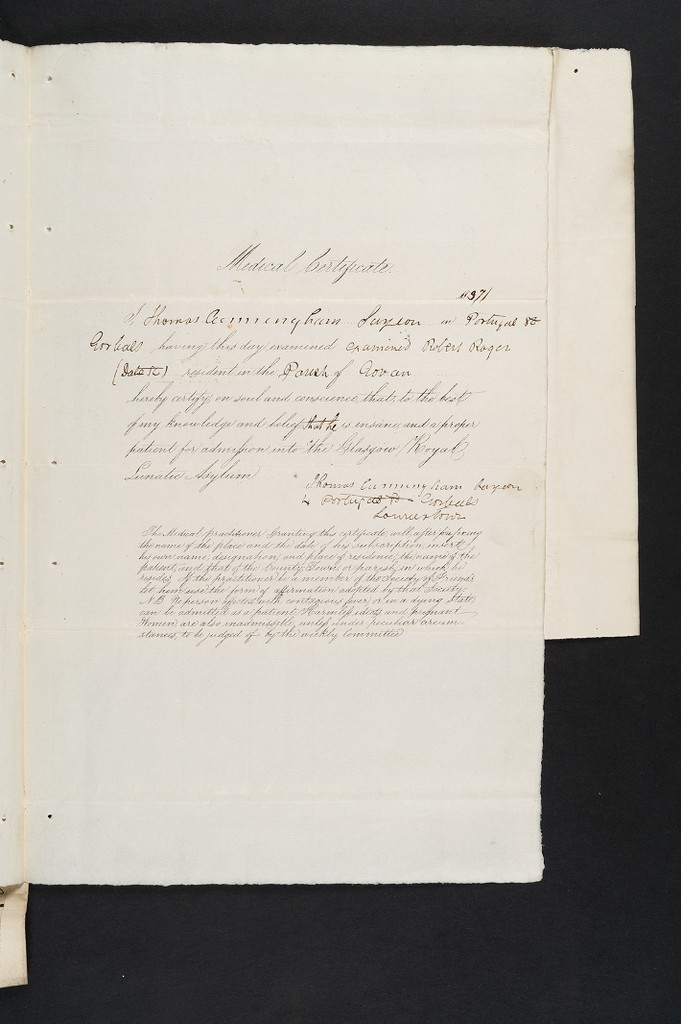 Medical Certificate.
371
I, Thomas Cunningham in Portugal St
Gorbals having this day examined examined Robert Roger
resident in the Parish of Govan
hereby certify on soul and conscience, that, to the best
of my knowledge and belief that he is insane and a proper
patient for admission into the Glasgow Royal
Lunatic Asylum
Thomas Cunningham
4 Portugal St Gorbals
Lauriestown
The Medical practitioner Granting this certificate, will, after prefixing
the name of the place and the date of his subscription, insert
his own name, designation, and place of residence, the name of the
patient, and that of the County, Town, or parish, in which he
resides. If the practitioner be a member of the Society of Friends
let him use the form of affirmation adopted by that Society.
N.B. No person affected with contagious fever or in a dying state
can be admitted as a patient. Harmless idiots and pregnant
Women are also inadmissible, unless under peculiar circum
stances, to be judged of by the weekly Committee